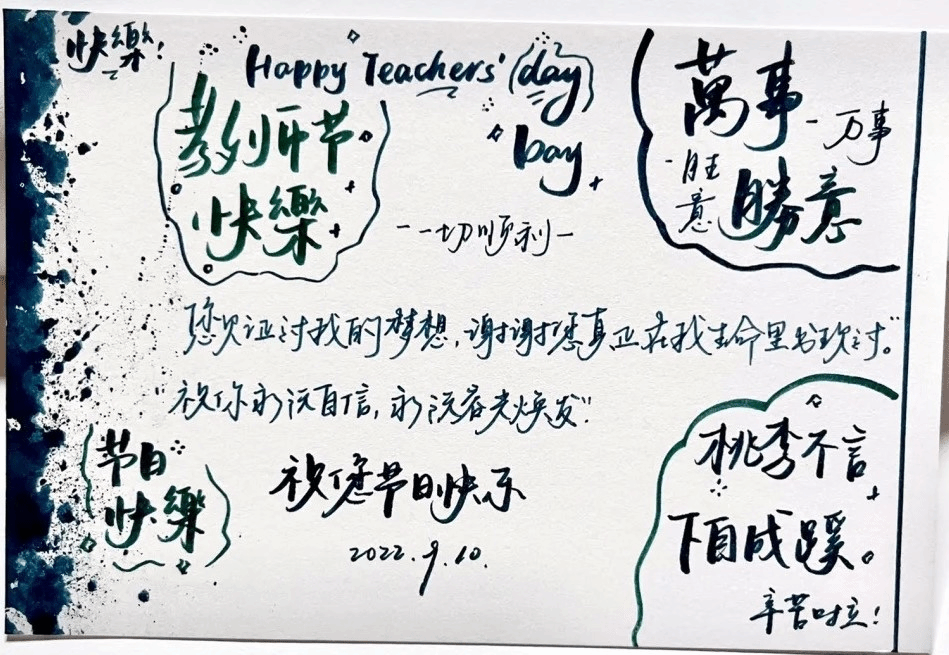 快樂!
Happy Teachers' day
Day
教师节
快樂
一切顺利
萬事
勝意
万事
胜
意
您见证过我的梦想,谢谢您真正在我生命里出现过。"
"祝你永远自信,永远容光焕发"
节日
快樂
祝您节日快乐
2022.9.10.
桃李不言
下自成蹊。
辛苦啦!